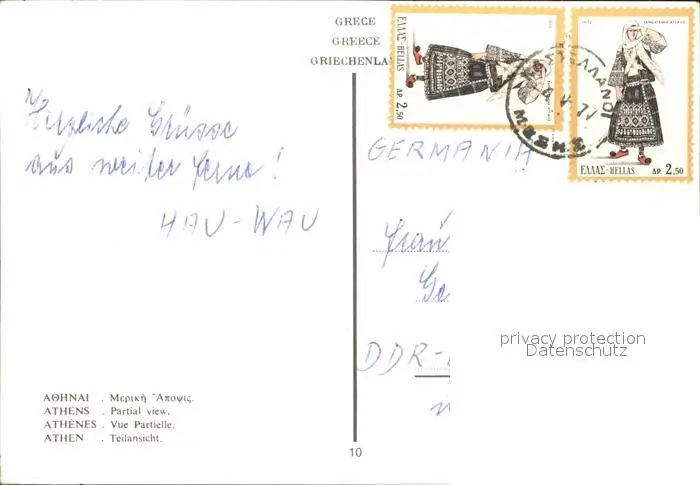 GRECE
GREECE
GRIECHENLA
ΕΛΛΑΣ-HELLAS
ΔΡ. 2,50
1972
ΕΛΛΑΣ-HELLAS ΔΡ. 2,50
Herzliche Grüsse
aus weiter Ferne!
HAU-WAU
GERMANIA
Frau
Ge
DDR-
privacy protection
Datenschutz
ΑΘΗΝΑΙ . Μερικὴ Ἄποψις.
ATHENS . Partial view.
ATHÈNES . Vue Partielle.
ATHEN . Teilansicht.
10